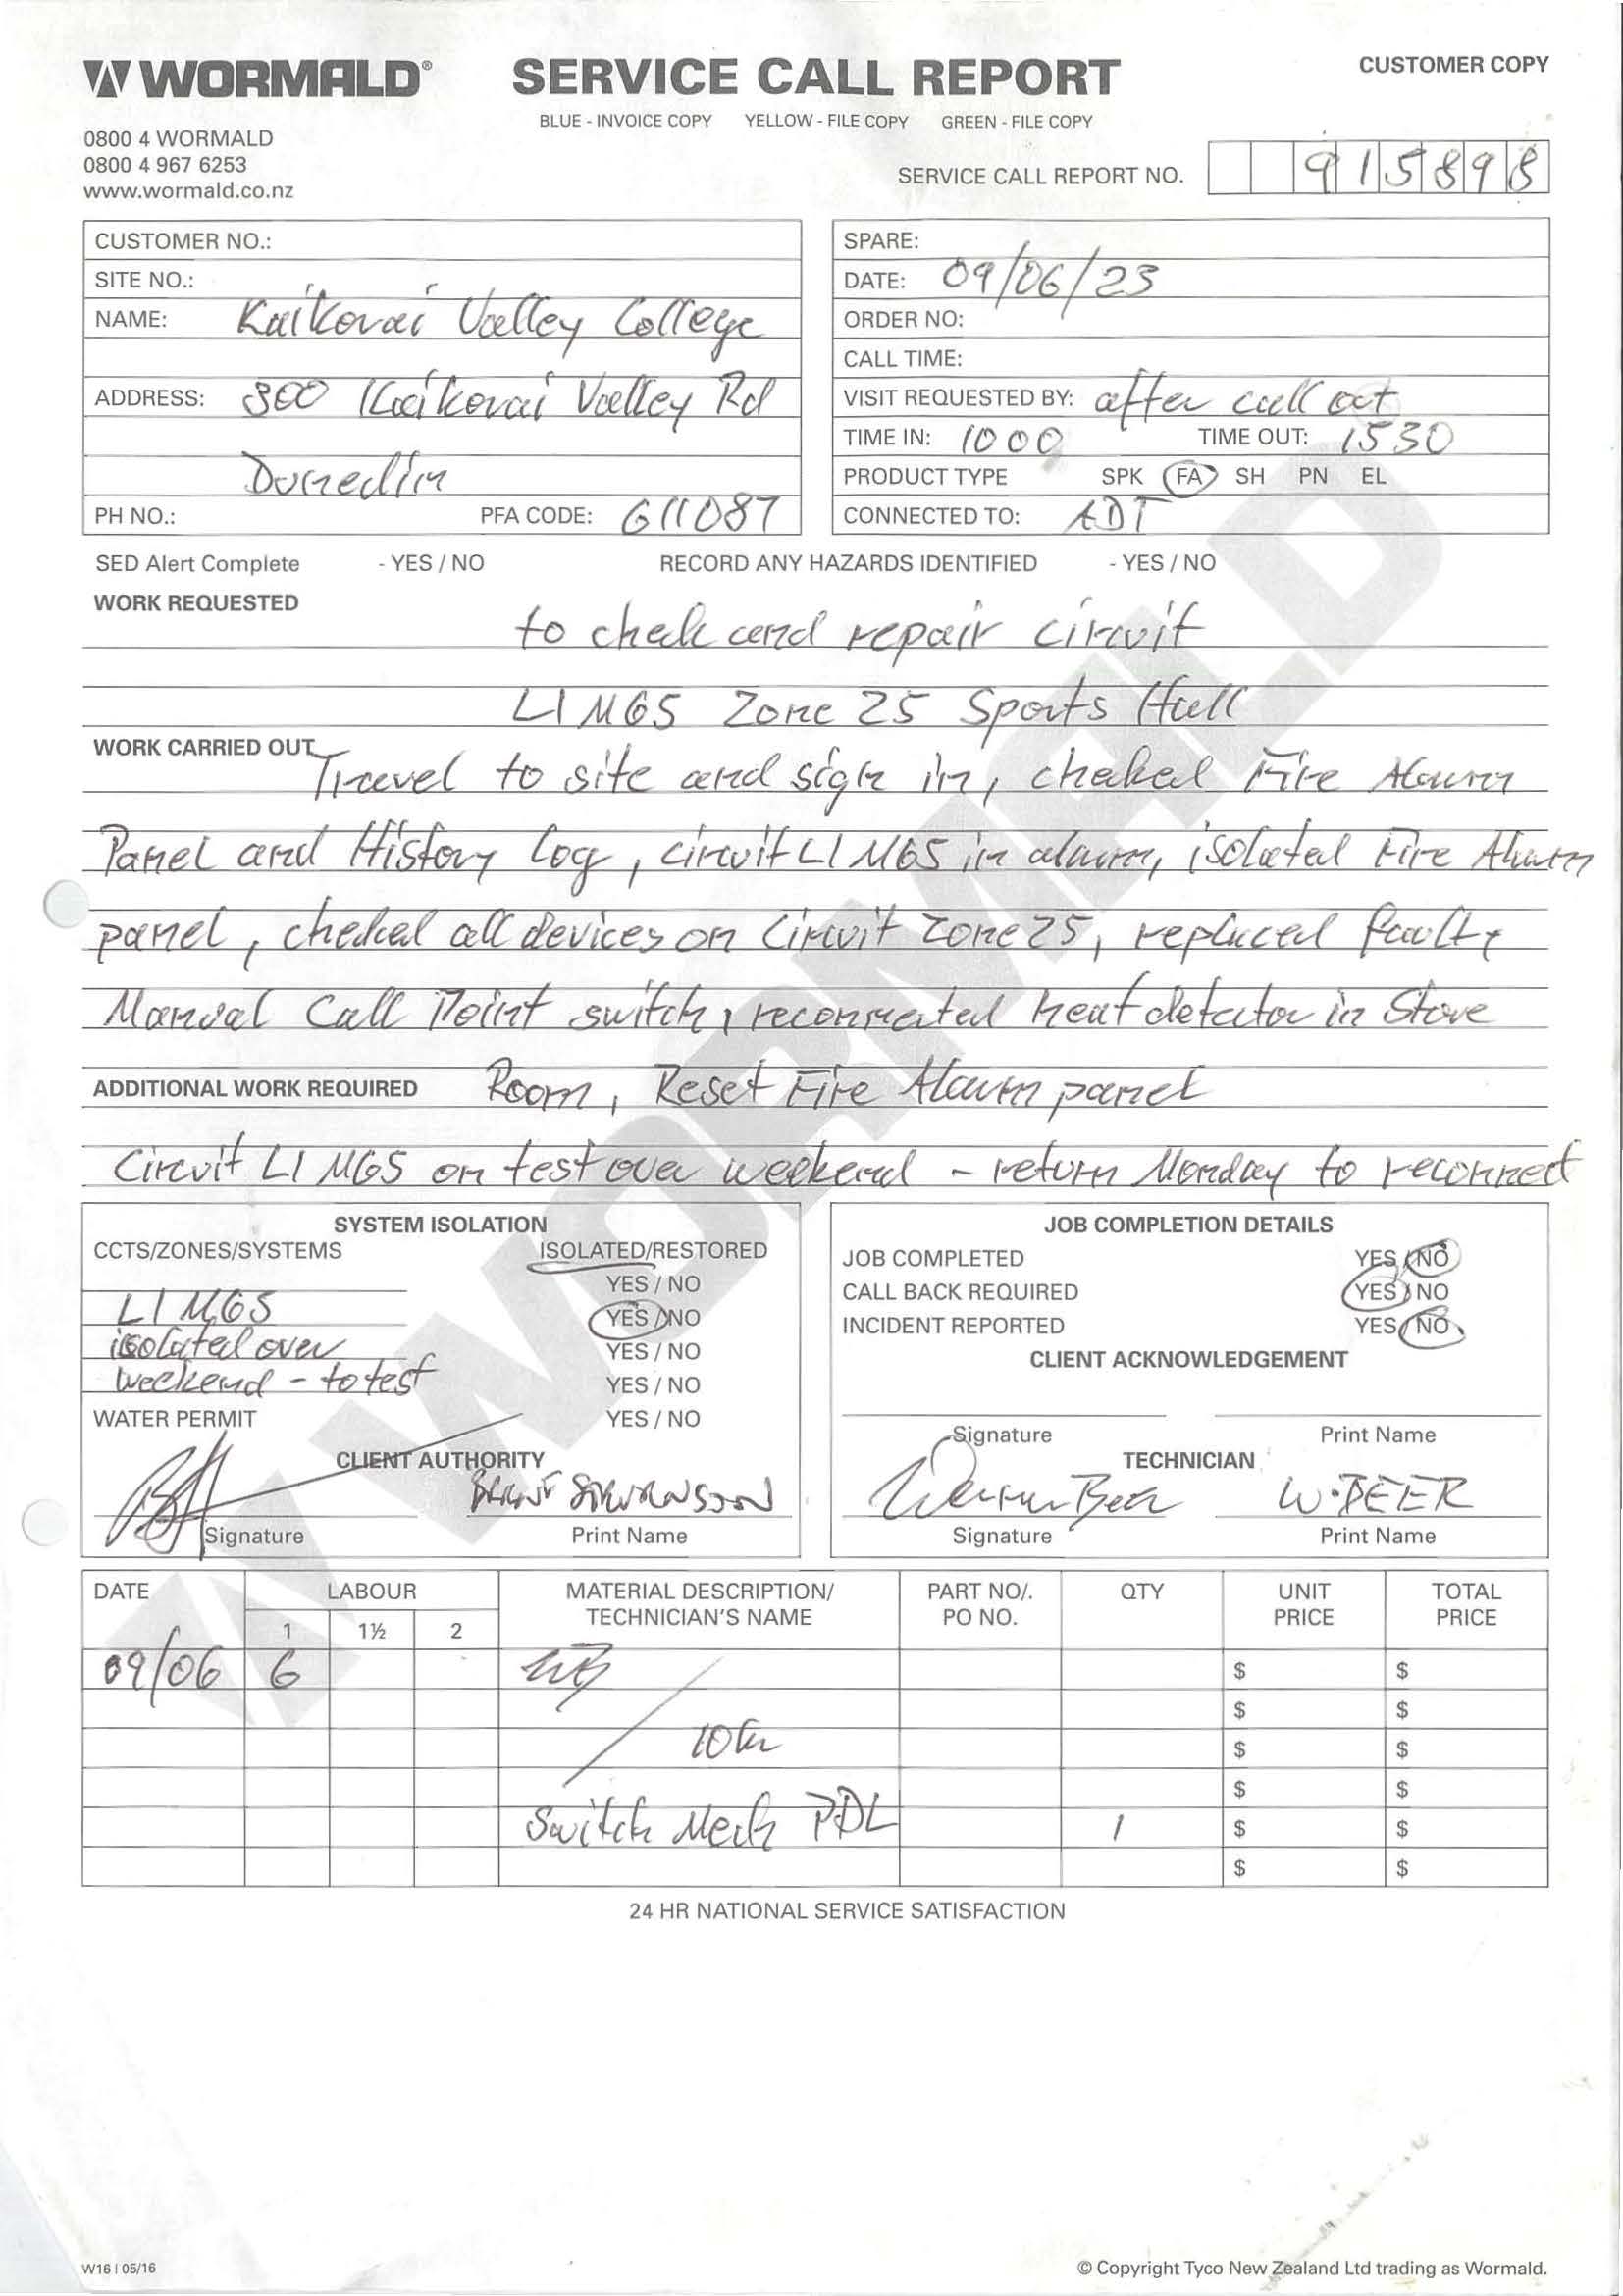 WORMALD®
SERVICE CALL REPORT
CUSTOMER COPY
BLUE - INVOICE COPY YELLOW - FILE COPY GREEN - FILE COPY
0800 4 WORMALD
0800 4 967 6253
www.wormald.co.nz
SERVICE CALL REPORT NO. 915898
CUSTOMER NO.:
SITE NO.:
NAME: Kaikorai Valley College
ADDRESS: 300 Kaikorai Valley Rd
Dunedin
PH NO.: PFA CODE: G11087
SPARE:
DATE: 09/06/23
ORDER NO:
CALL TIME:
VISIT REQUESTED BY: after call out
TIME IN: 1000 TIME OUT: 1530
PRODUCT TYPE SPK FA SH PN EL
CONNECTED TO: ADT
SED Alert Complete - YES / NO RECORD ANY HAZARDS IDENTIFIED - YES / NO
WORK REQUESTED
to check and repair circuit
L1 M65 Zone 25 Sports Hall
WORK CARRIED OUT Travel to site and sign in, checked Fire Alarm
Panel and History log, circuit L1 M65 in alarm, isolated Fire Alarm
panel, checked all devices on Circuit Zone 25, replaced faulty
Manual Call Point switch, reconnected heat detector in Store
ADDITIONAL WORK REQUIRED Room, Reset Fire Alarm panel
Circuit L1 M65 on test over weekend - return Monday to reconnect
SYSTEM ISOLATION
CCTS/ZONES/SYSTEMS ISOLATED/RESTORED
YES / NO
L1 M65 YES / NO
isolated over YES / NO
weekend - to test YES / NO
WATER PERMIT YES / NO
CLIENT AUTHORITY
Signature Print Name
JOB COMPLETION DETAILS
JOB COMPLETED YES / NO
CALL BACK REQUIRED YES / NO
INCIDENT REPORTED YES / NO
CLIENT ACKNOWLEDGEMENT
Signature Print Name
TECHNICIAN
W. BEER
Signature Print Name
DATE LABOUR MATERIAL DESCRIPTION/ PART NO/. QTY UNIT TOTAL
1 1½ 2 TECHNICIAN'S NAME PO NO. PRICE PRICE
09/06 6 WB $ $
$ $
$ $
$ $
Switch Mech PDL 1 $ $
$ $
24 HR NATIONAL SERVICE SATISFACTION
W16 | 05/16
© Copyright Tyco New Zealand Ltd trading as Wormald.